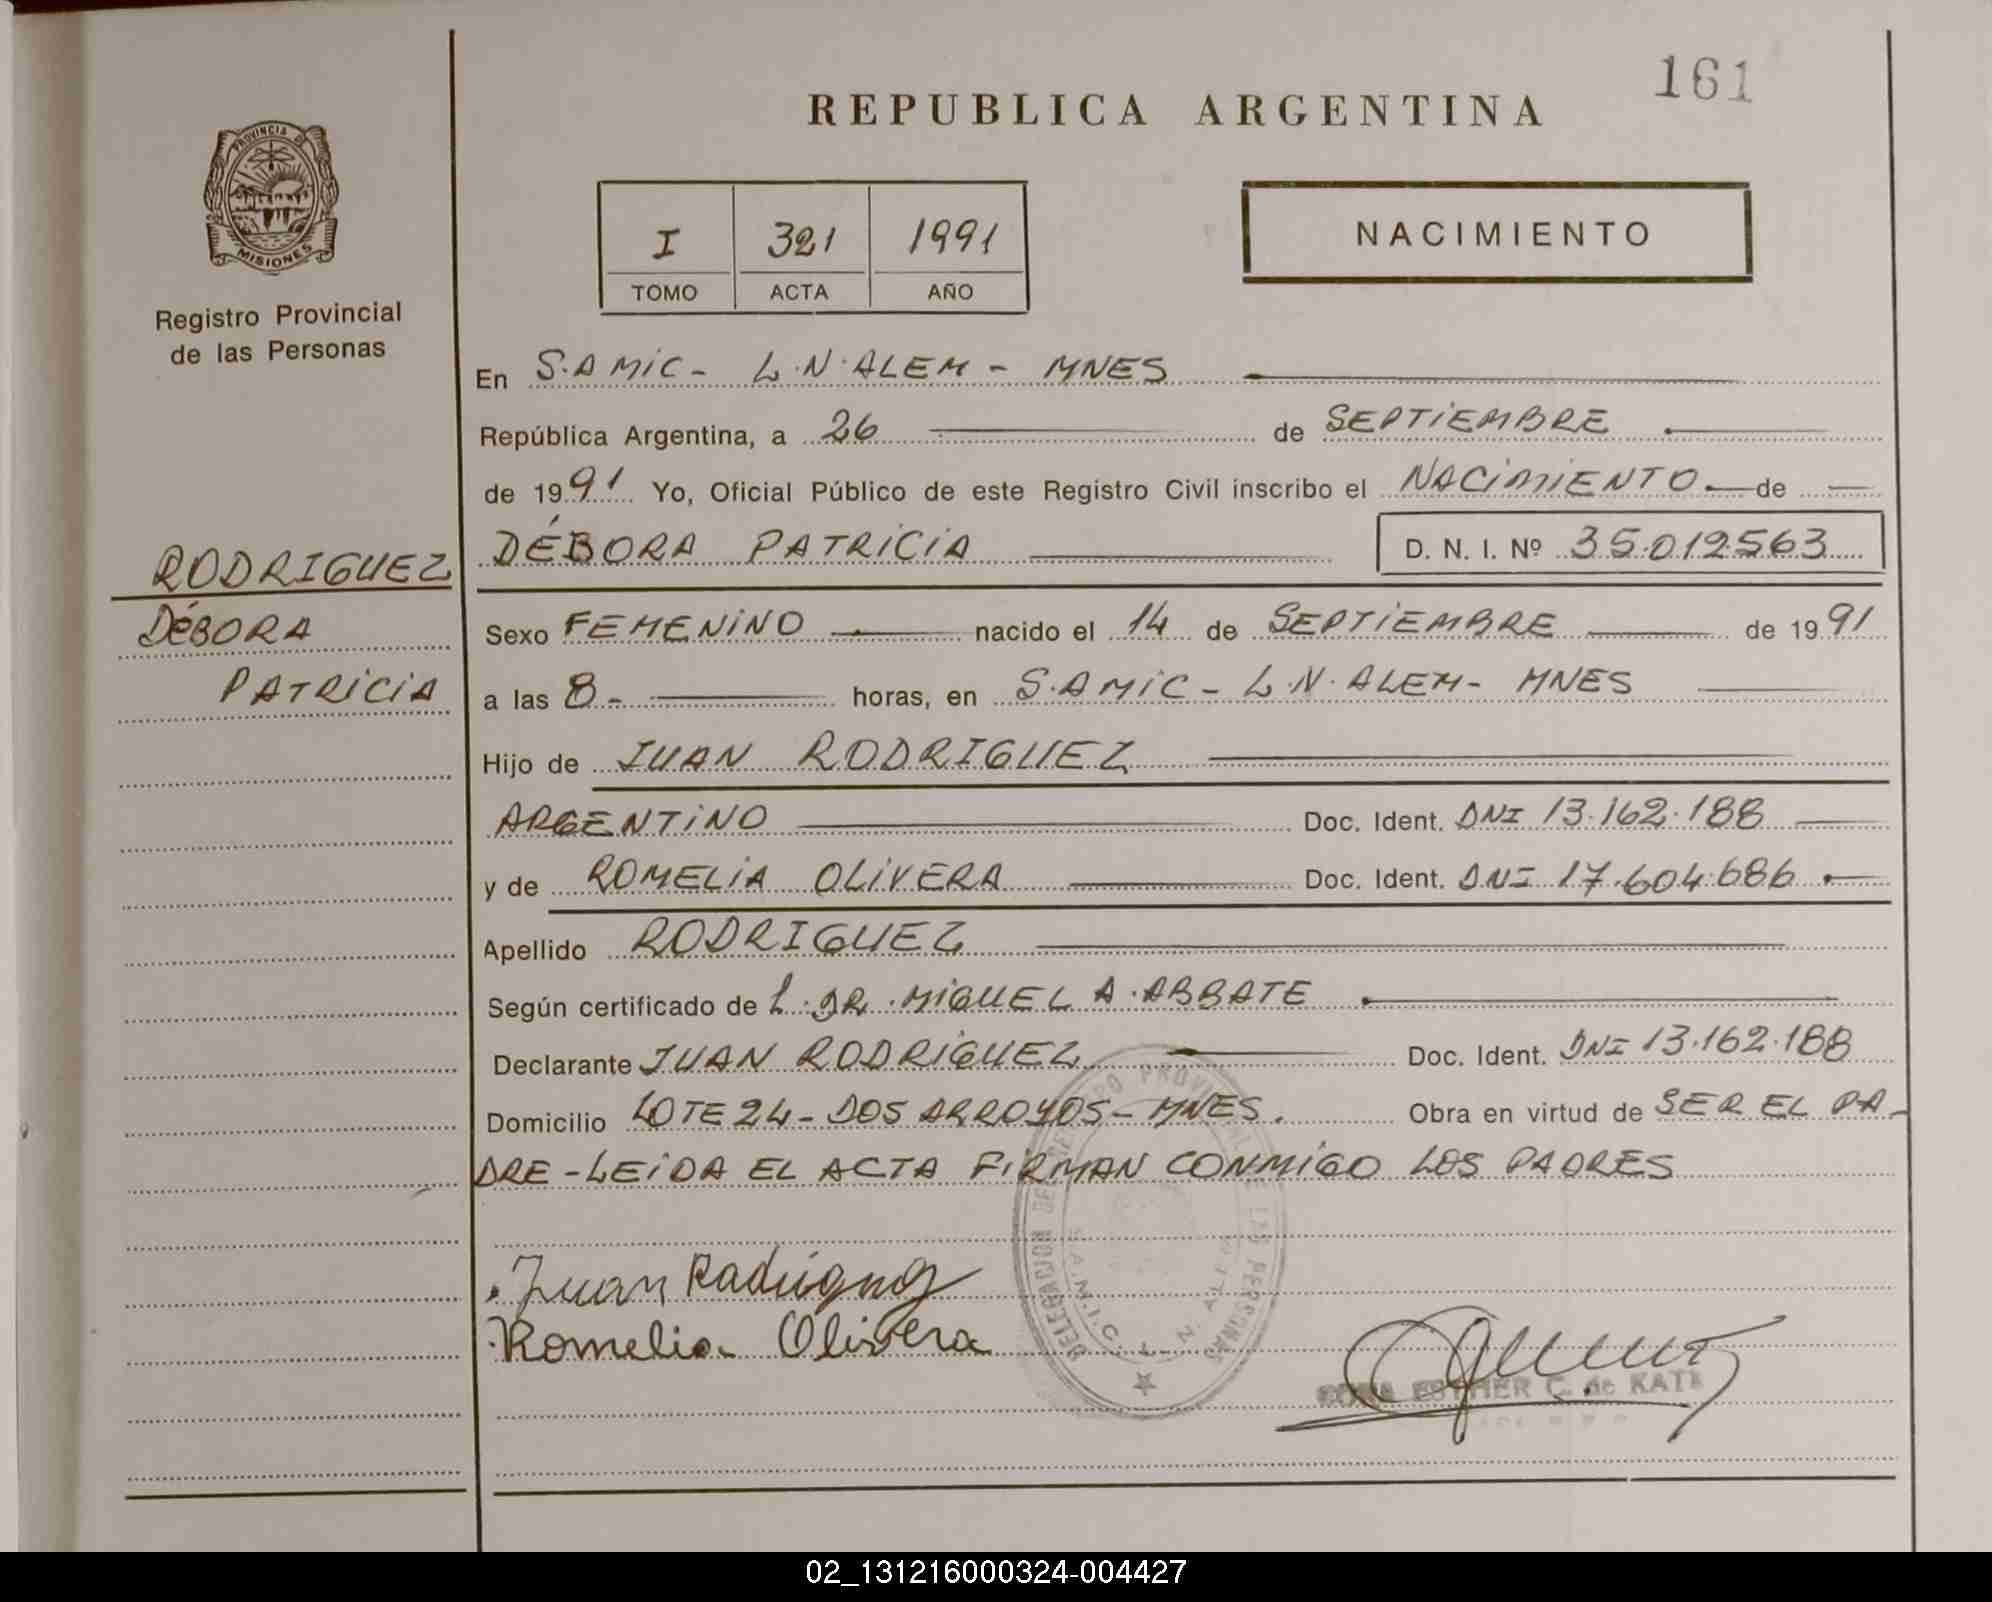 161
REPUBLICA ARGENTINA
PROVINCIA DE
MISIONES
Registro Provincial
de las Personas
I 321 1991
TOMO ACTA AÑO
NACIMIENTO
En S.AMIC - L.N.ALEM - MNES
República Argentina, a 26 de SEPTIEMBRE
de 1991 Yo, Oficial Público de este Registro Civil inscribo el NACIMIENTO de
DÉBORA PATRICIA D. N. I. Nº 35.012.563
RODRIGUEZ
DÉBORA
PATRICIA
Sexo FEMENINO nacido el 14 de SEPTIEMBRE de 1991
a las 8 - horas, en S.AMIC - L.N.ALEM - MNES
Hijo de JUAN RODRIGUEZ
ARGENTINO Doc. Ident. DNI 13.162.188
y de ROMELIA OLIVERA Doc. Ident. DNI 17.604.686
Apellido RODRIGUEZ
Según certificado de L. DR. MIGUEL A. ABBATE
Declarante JUAN RODRIGUEZ Doc. Ident. DNI 13.162.188
Domicilio LOTE 24 - DOS ARROYOS - MNES. Obra en virtud de SER EL PA-
DRE - LEIDA EL ACTA FIRMAN CONMIGO LOS PADRES
Juan Rodriguez
Romelia Olivera
DELEGACION DEL REGISTRO PROVINCIAL DE LAS PERSONAS
L. N. ALEM
ESTHER C. de KATZ
02_131216000324-004427